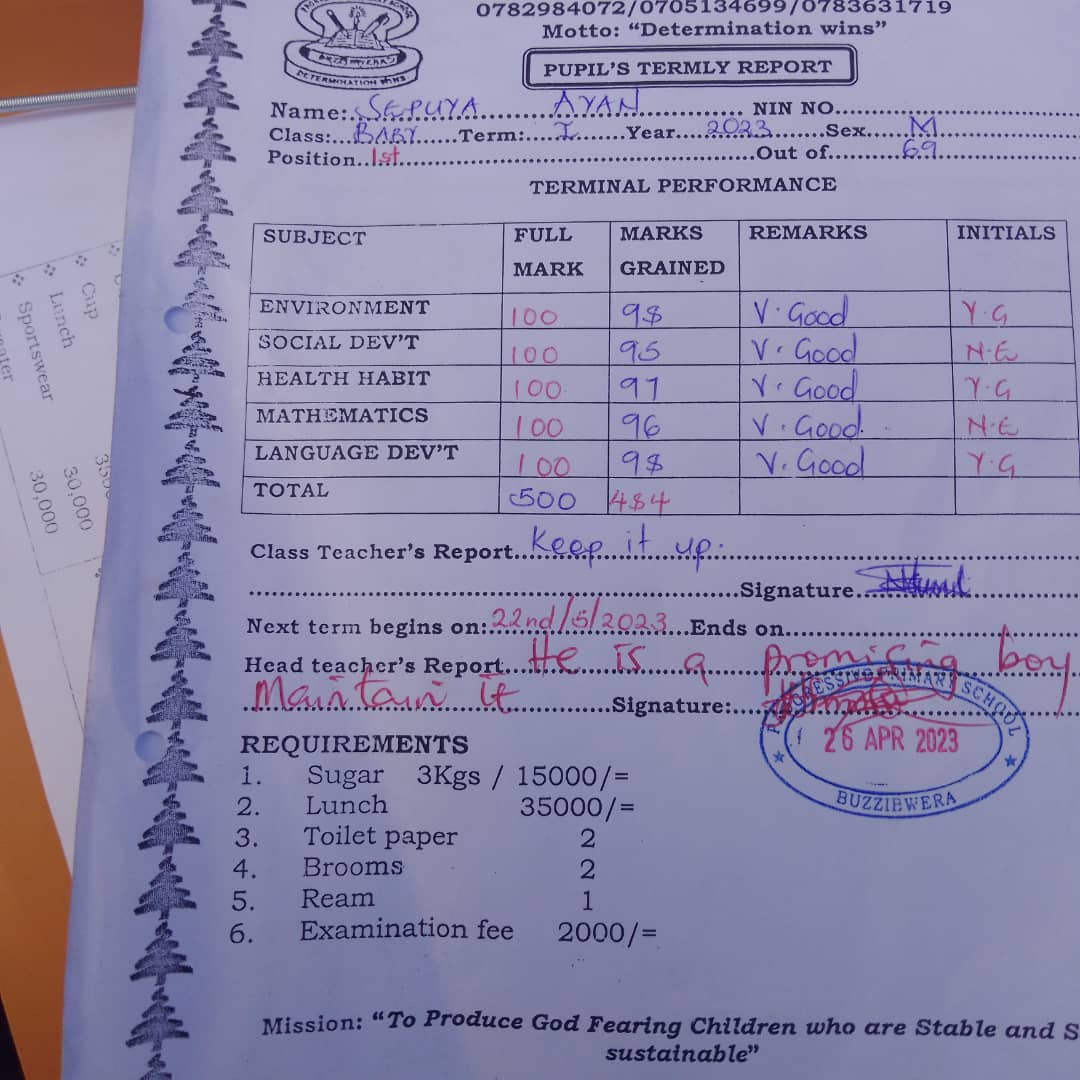 0782984072/0705134699/0783631719
Motto: “Determination wins”
DETERMINATION WINS
PUPIL'S TERMLY REPORT
Name: SEPUYA AYAN NIN NO
Class: BABY Term: I Year 2023 Sex M
Position 1st Out of 69
TERMINAL PERFORMANCE
SUBJECT FULL MARK MARKS GRAINED REMARKS INITIALS
ENVIRONMENT 100 98 V. Good Y.G
SOCIAL DEV'T 100 95 V. Good N.E
HEALTH HABIT 100 97 V. Good Y.G
MATHEMATICS 100 96 V. Good. N.E
LANGUAGE DEV'T 100 98 V. Good Y.G
TOTAL 500 484
Class Teacher's Report Keep it up.
Signature
Next term begins on: 22nd/5/2023 Ends on
Head teacher's Report He is a promising boy
Maintain it Signature:
PRIMARY SCHOOL
26 APR 2023
BUZZIBWERA
REQUIREMENTS
1. Sugar 3Kgs / 15000/=
2. Lunch 35000/=
3. Toilet paper 2
4. Brooms 2
5. Ream 1
6. Examination fee 2000/=
Mission: “To Produce God Fearing Children who are Stable and
sustainable”
Cup
Lunch 30,000
Sportswear 30,000